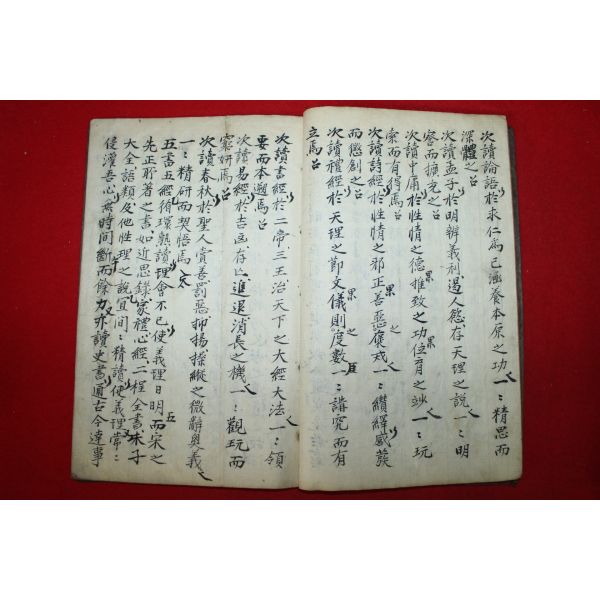 次讀論語於求仁爲己涵養本原之功一〻精思而
深體之呂
次讀孟子於明辨義利遏人慾存天理之說一〻明
察而擴充之呂
次讀中庸於性情之德推致之功位育之妙一〻玩
索而有得焉呂
次讀詩經於性情之邪正善惡褒戒一〻繹感發
而懲創之呂
次讀禮經於天理之節文儀則度數一〻講究而有
立焉呂
次讀書經於二帝三王治天下之大經大法一〻領
要而本遡焉呂
次讀易經於吉凶存亡進退消長之機一〻觀玩而
窮姸焉呂
次讀春秋於聖人賞善罰惡抑揚操縱之微辭奧義
一〻精研而契悟焉
五書五經循環熟讀理會不已使義理日明而宋之
先正所著之書如近思錄家禮心經二程全書朱子
大全語類及他性理之說宜間〻精讀使義理常〻
侵灌吾心無時間斷而餘力亦讀史書通古今達事